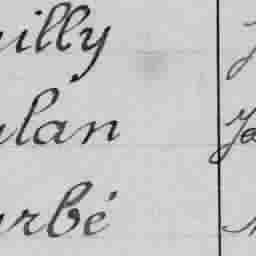 illy
lan
rbé